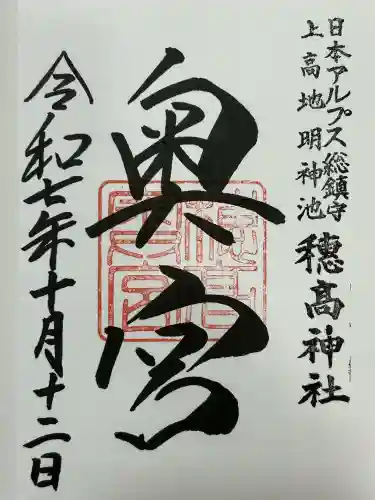 日本アルプス総鎮守
上高地明神池 穂高神社
奥宮
穂高奥宮
令和七年十月十二日